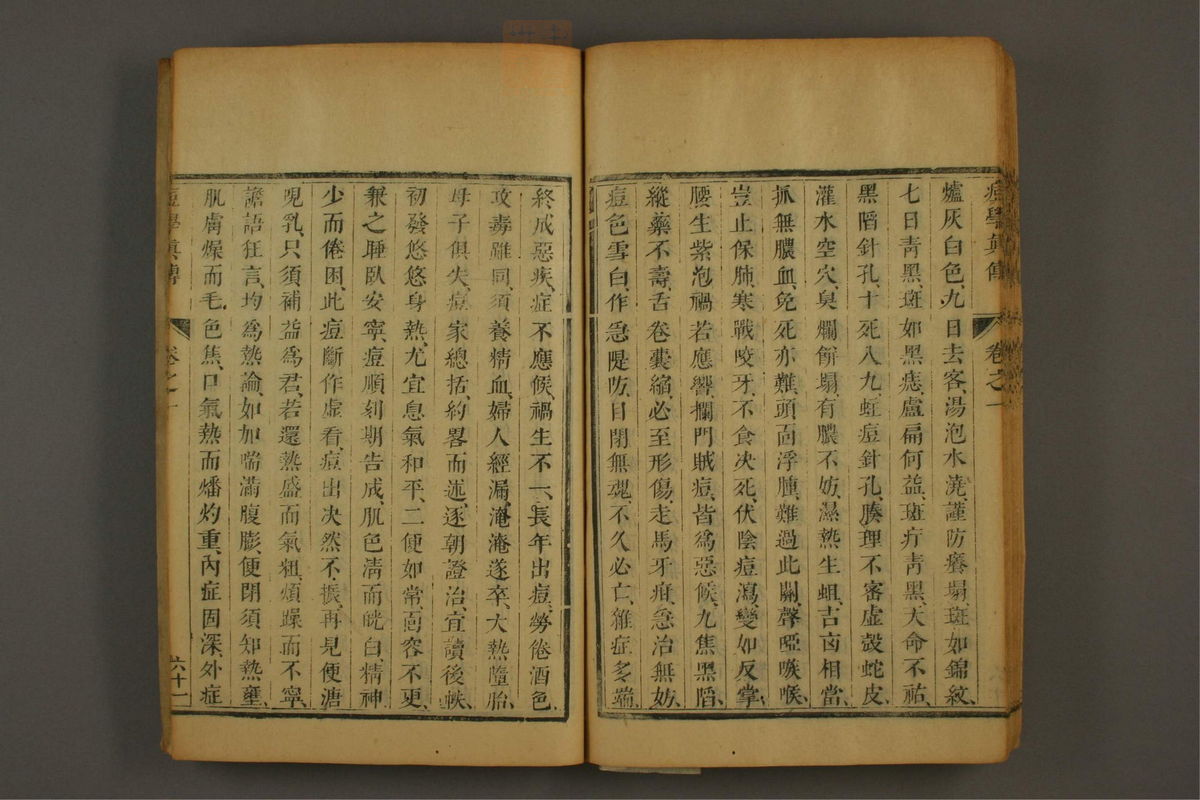 痘學眞傳 卷之一
爐灰白色、九日去客、湯泡水澆、謹防癢塌、斑如錦紋、
七日靑黑、斑如黑痣、盧扁何益、斑疔靑黑、天命不祐、
黑䧟針孔、十死八九、蛀痘針孔、腠理不審、虛殼蛇皮、
灌水空穴、臭爛餅塌、有膿不妨、濕熱生蛆、吉凶相當、
抓無膿血、免死亦難、頭面浮腫、難過此關、聲啞嗾喉、
豈止保肺、寒戰咬牙、不食决死、伏陰痘瀉、變如反掌、
腰生紫泡、禍若應響、攔門賊痘、皆爲惡候、九焦黑䧟、
縱藥不壽、舌卷囊縮、必至形傷、走馬牙疳、急治無妨、
痘色雪白、作急隄防、目閉無魂、不久必亡、雜症多端、
終成惡疾、症不應候、禍生不一、長年出痘、勞倦酒色、
攻毒雖同、須養精血、婦人經漏、淹淹遂卒、大熱墮胎、
母子俱失、痘家總括、約畧而述、逐朝證治、宜讀後帙、
初發悠悠身熱、尤宜息氣和平、二便如常、面容不更、
兼之睡臥安寧、痘順刻期告成、肌色淸而㿠白、精神
少而倦困、此痘斷作虛看、痘出决然不振、再見便溏
哯乳、只須補益爲君、若還熱盛而氣粗、煩躁而不寧、
譫語狂言、均爲熱論、如加喘滿腹膨、便閉須知熱壅、
肌膚燥而毛色焦、口氣熱而燔灼重、內症固深、外症
痘學眞傳 卷之一 六十一